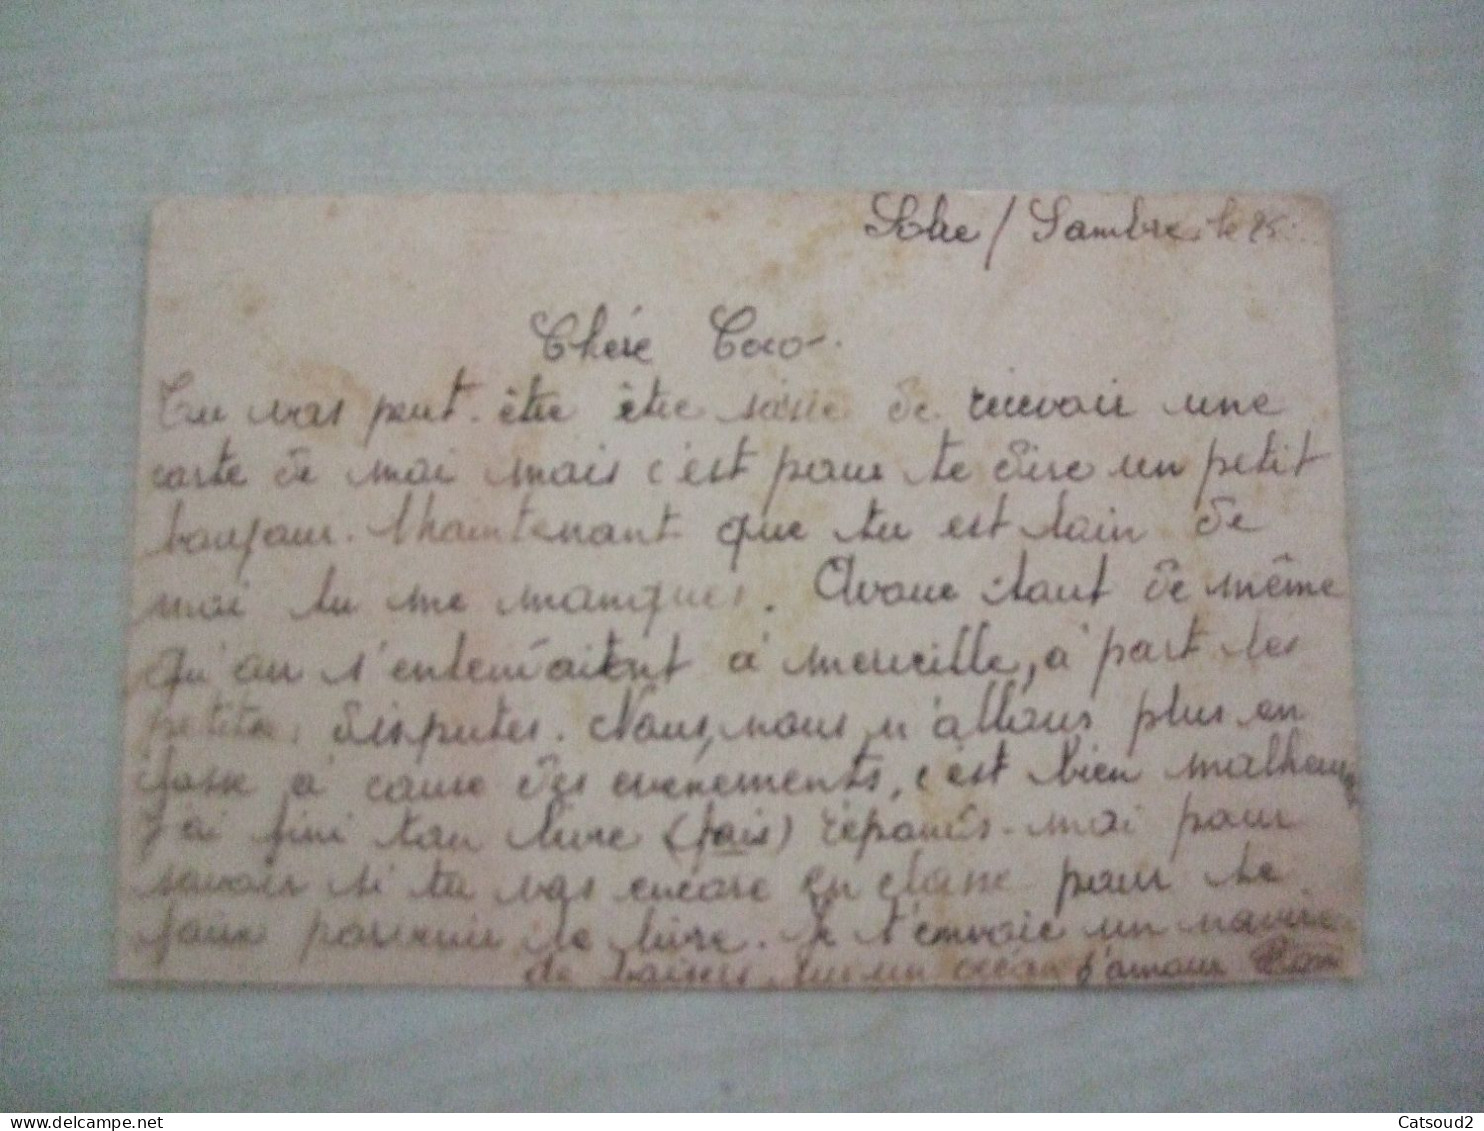 Solre / Sambre, le 25
Chére Coco.
Tu vas peut-être être saisie de recevoir une
carte de moi mais c'est pour te dire un petit
bonjour. Maintenant que tu est loin de
moi tu me manques. Avoue tout de même
qu'on s'entendaitent à merveille, à part les
petites disputes. Nous, nous n'allons plus en
classe à cause des evénements, c'est bien malheureux
J'ai fini ton livre (fais) réponds-moi pour
savoir si tu vas encore en classe pour te
faire parvenir le livre. Je t'envoie un navire
de baisers, sur un océan d'amour
Catsoud2